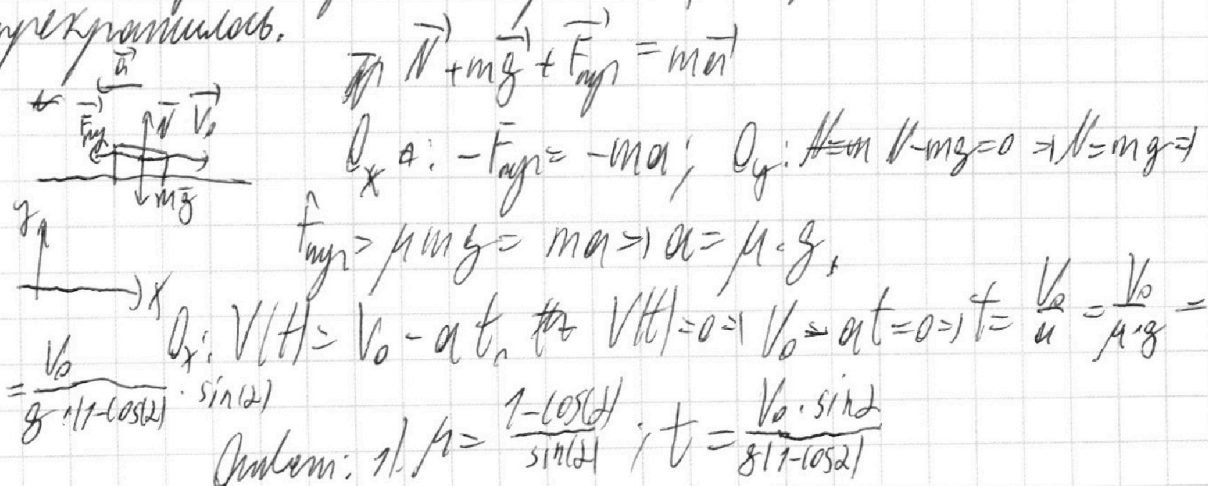 прекратилось.
N + mg + Fтр = ma
a
Fтр N V₀
mg
Oₓ: -Fтр = -ma; Oy: N-mg=0 ⇒ N=mg ⇒
y
Fтр = μmg = ma ⇒ a = μ·g,
x
Oₓ: V(t) = V₀ - at, V(t)=0 ⇒ V₀ - at=0 ⇒ t = V₀/a = V₀/(μ·g) =
= V₀/(g·(1-cos(α)) · sin(α)
Ответ: 1) μ = (1-cos(α))/sin(α) ; t = V₀·sinα/(g(1-cosα))